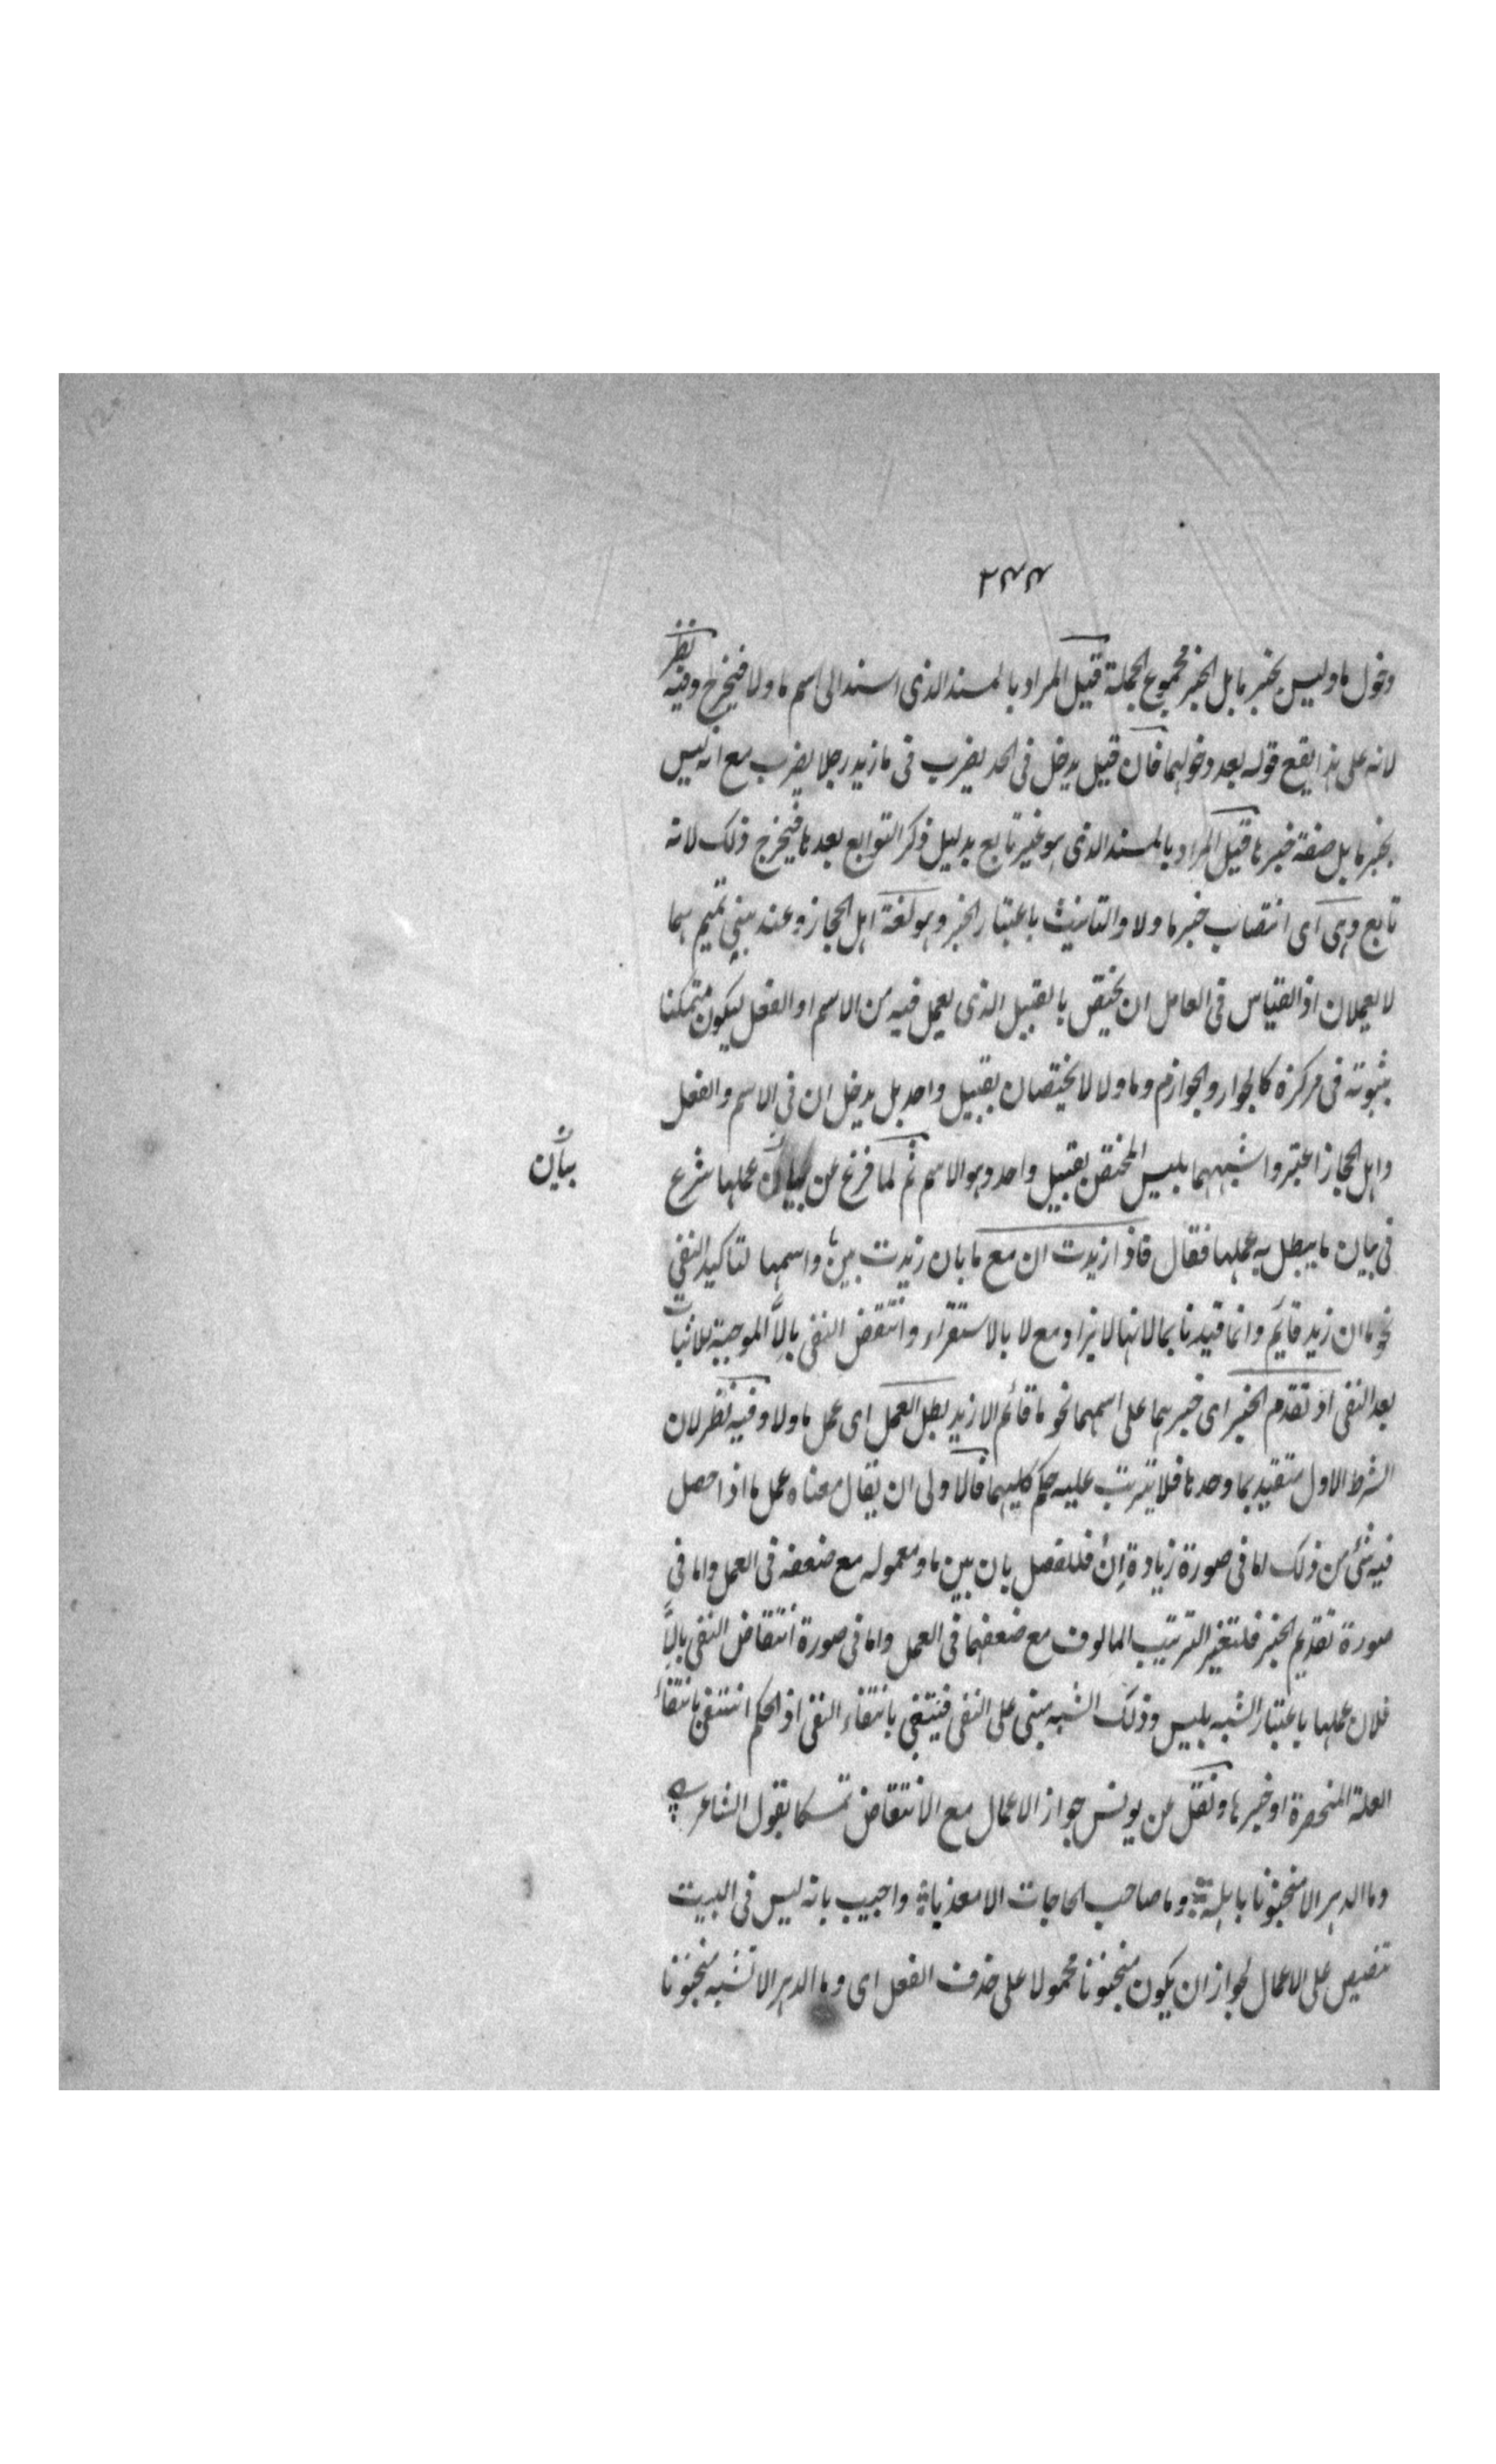 ٢٤٤
دخول ما وليس بخبر ما بل الخبر مجموع الجملة قيل المراد بالمسند الذى اسند الى اسم ما ولا فيخرج وفيه نظر
لانه على هذا يقع قوله بعد دخولهما فان قيل يدخل فى الحد يضرب فى ما زيد رجلا يضرب مع انه ليس
بخبر ما بل صفة خبرها قيل المراد بالمسند الذى هو غير تابع بدليل ذكر التوابع بعدها فيخرج ذلك لانه
تابع وهى اى انتصاب خبر ما ولا والتانيث باعتبار الخبر وهو لغة اهل الحجاز وعند بنى تميم هما
لا يعملان اذ القياس فى العامل ان يختص بالقبيل الذى يعمل فيه من الاسم او الفعل ليكون متمكنا
بثبوته فى مركزه كالجوار والجوازم وما ولا لا يختصان بقبيل واحد بل يدخلان فى الاسم والفعل
واهل الحجاز اعتبروا شبههما بليس المختص بقبيل واحد وهو الاسم ثم لما فرغ من بيان عملها شرع
بيان
فى بيان ما يبطل به عملها فقال فاذا زيدت ان مع ما بان زيدت بين ما واسمها لتاكيد النفى
نحو ما ان زيد قايم وانما قيدنا بما لانها لا تزاد مع لا بالاستقراء وانتقض النفى بالّا الموجبة للاثبات
بعد النفى او تقدم الخبر اى خبرهما على اسمهما نحو ما قائم الا زيد بطل العمل اى عمل ما ولا وفيه نظر لان
الشرط الاول متقيد بما وحدها فلا يترتب عليه حكم كليهما فالاولى ان يقال معناه عمل ما اذا حصل
فيه شئ من ذلك اما فى صورة زيادة اِنْ فللفصل بان بين ما ومعموله مع ضعفه فى العمل واما فى
صورة تقديم الخبر فلتغير الترتيب المالوف مع ضعفهما فى العمل واما فى صورة انتقاض النفى بالّا
فلان عملها باعتبار الشبه بليس وذلك الشبه مبنى على النفى فينتفى بانتفاء النفى اذ الحكم انتفى بانتفاء
العلة المنحصرة او خبرها ونقل عن يونس جواز الاعمال مع الانتقاض تمسكا بقول الشاعر
وما الدهر الا منجنونا باهله وما صاحب الحاجات الا معذبا واجيب بانه ليس فى البيت
تنصيص على الاعمال لجواز ان يكون منجنونا محمولا على حذف الفعل اى وما الدهر الا تشبه منجنونا